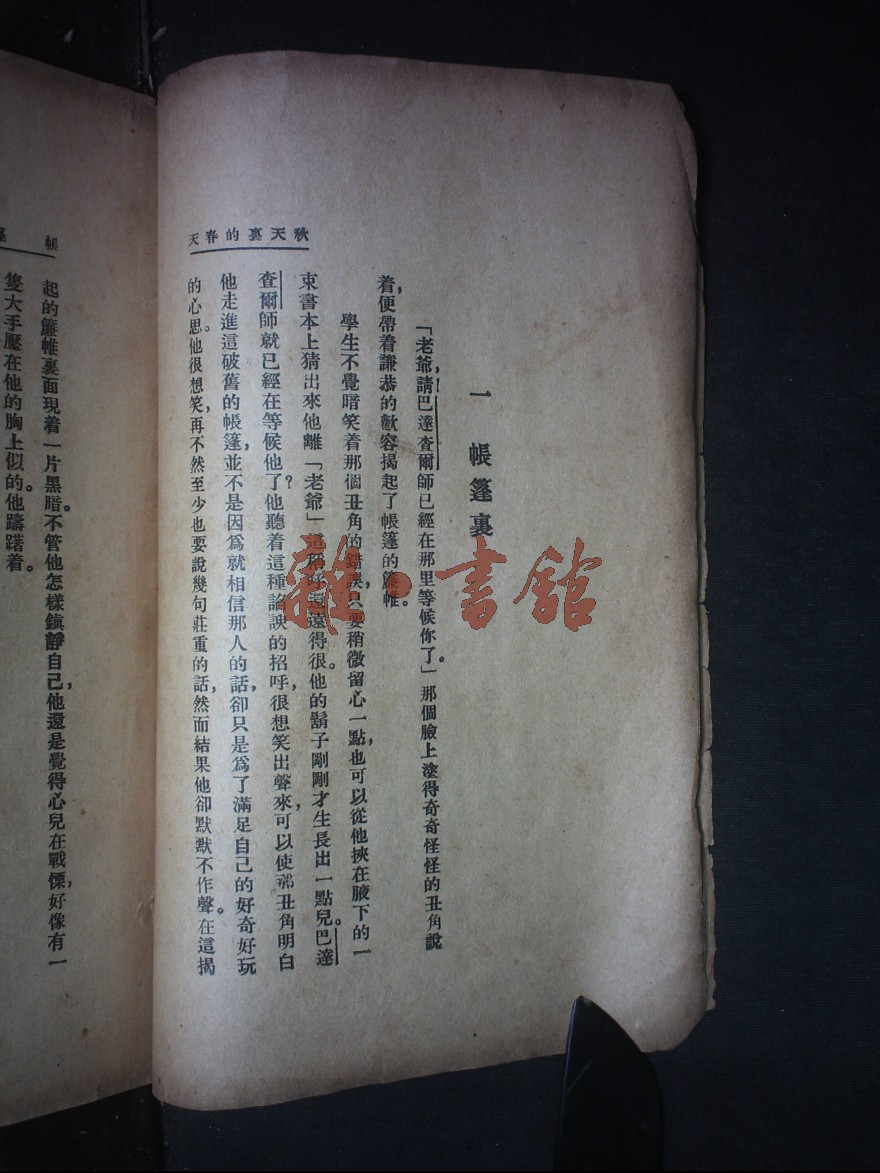 秋天裏的春天
一　帳篷裏
「老爺，請！巴達查爾師已經在那里等候你了。」那個臉上塗得奇奇怪怪的丑角說
着，便帶着謙恭的歡容揭起了帳篷的簾帷。
學生不覺暗笑着那個丑角的錯誤，只要稍微留心一點，也可以從他挾在腋下的一
束書本上猜出來他離「老爺」這稱呼還遠得很。他的鬍子剛剛才生長出一點兒。巴達
查爾師就已經在等候他了？他聽着這種諂諛的招呼，很想笑出聲來，可以使那丑角明白
他走進這破舊的帳篷，並不是因爲就相信那人的話，卻只是爲了滿足自己的好奇好玩
的心思。他很想笑，再不然至少也要說幾句莊重的話，然而結果他卻默默不作聲。在這揭
帳
起的簾帷裏面現着一片黑暗。不管他怎樣鎮靜自己，他還是覺得心兒在戰慄，好像有一
隻大手壓在他的胸上似的。他躊躇着。
雜·書館